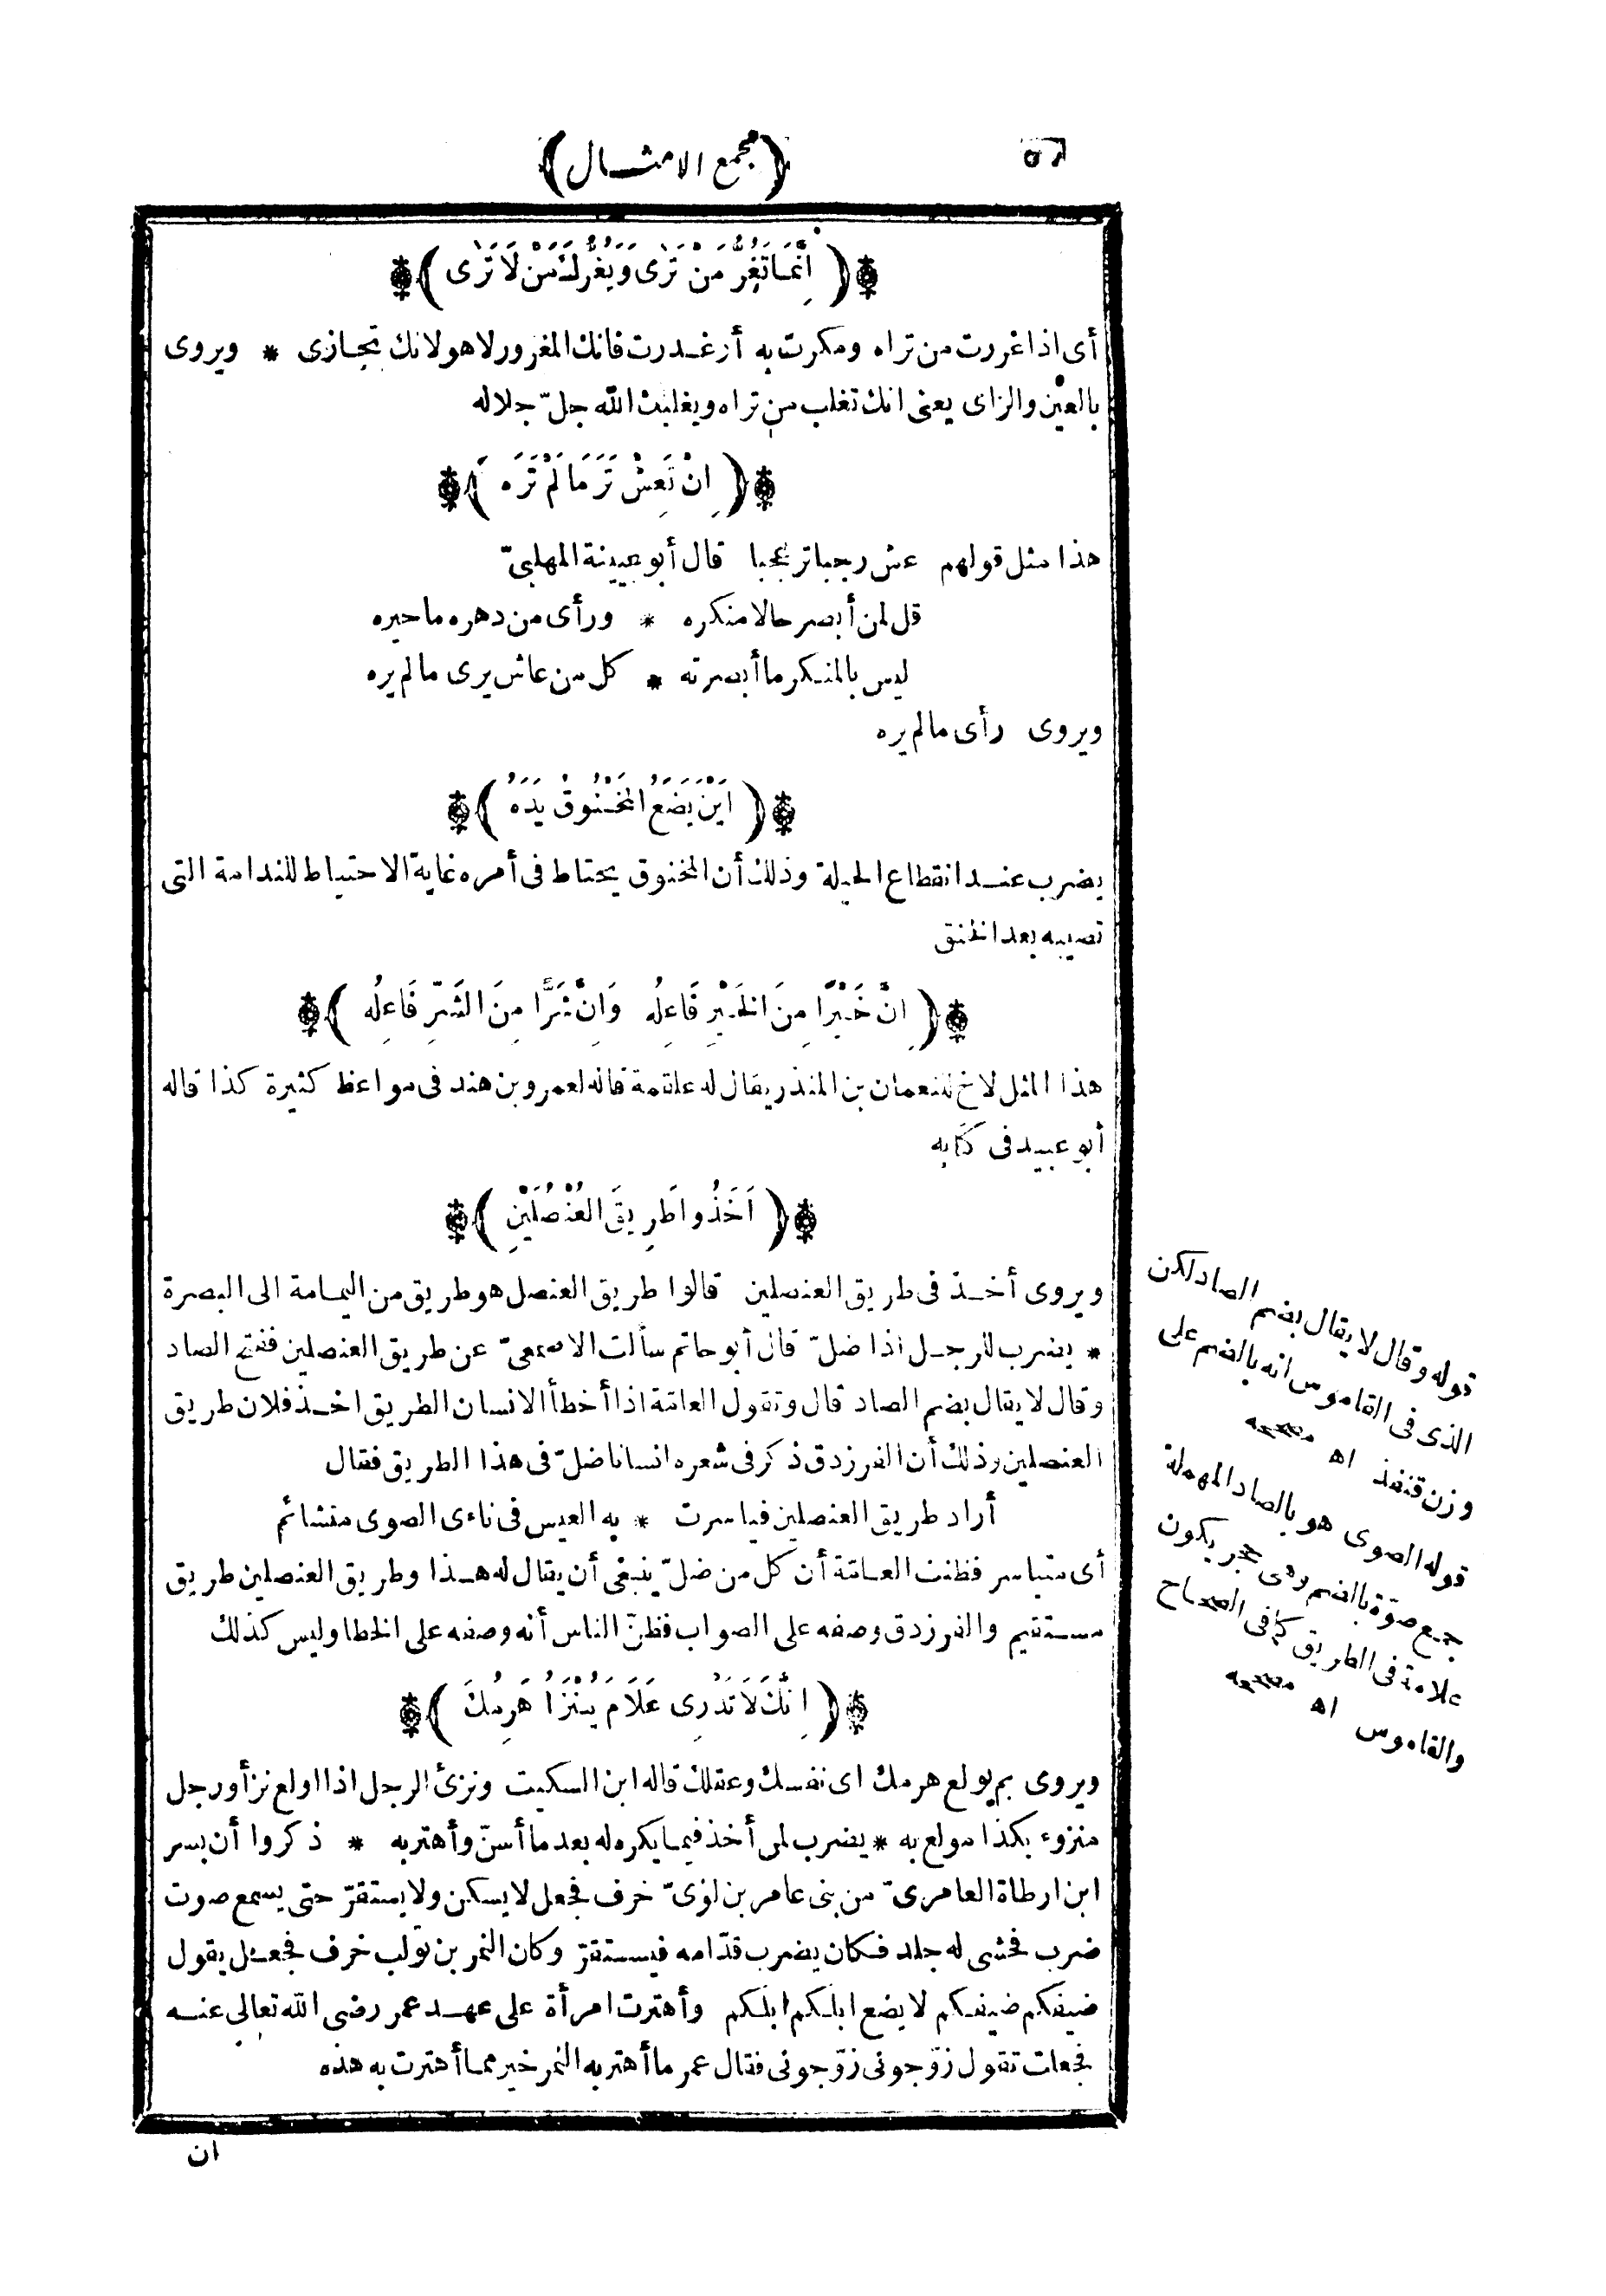 ٥٦
(مجمع الامثال)
(اِنَّمَا تَغُرُّ مَنْ تَرَى وَيَغُرُّكَ مَنْ لَا تَرَى)
أى اذا غررت من تراه ومكرت به أو غدرت فانك المغرور لا هو لانك تجازى * ويروى
بالعين والزاى يعنى انك تغلب من تراه ويغلبك الله جلّ جلاله
(اِنْ تَعِشْ تَرَ مَا لَمْ تَرَه)
هذا مثل قولهم عش رجبا تر عجبا قال أبو عيينة المهلبىّ
قل لمن أبصر حالا منكره * ورأى من دهره ما حيره
ليس بالمنكر ما أبصرته * كل من عاش يرى ما لم يره
ويروى رأى ما لم يره
(اَيْنَ يَضَعُ المَخْنُوقُ يَدَهُ)
يضرب عند انقطاع الحيلة وذلك أن المخنوق يحتاط فى أمره غاية الاحتياط للندامة التى
تصيبه بعد الخنق
(اِنَّ خَيْرًا مِنَ الخَيْرِ فَاعِلُه وَاِنَّ شَرًّا مِنَ الشَرِّ فَاعِلُه)
هذا المثل لاخ للنعمان بن المنذر يقال له علقمة قاله لعمرو بن هند فى مواعظ كثيرة كذا قاله
أبو عبيد فى كتابه
(اَخَذُوا طَرِيقَ العُنْصُلَيْنِ)
ويروى أخذ فى طريق العنصلين قالوا طريق العنصل هو طريق من اليمامة الى البصرة
* يضرب للرجل اذا ضلّ قال أبو حاتم سألت الاصمعىّ عن طريق العنصلين ففتح الصاد
وقال لا يقال بضم الصاد قال وتقول العامّة اذا أخطأ الانسان الطريق اخذ فلان طريق
العنصلين وذلك أن الفرزدق ذكر فى شعره انسانا ضلّ فى هذا الطريق فقال
أراد طريق العنصلين فياسرت * به العيس فى ناءى الصوى متشائم
أى متياسر فظنت العامّة أن كل من ضلّ ينبغى أن يقال له هذا وطريق العنصلين طريق
مستقيم والفرزدق وصفه على الصواب فظنّ الناس أنه وصفه على الخطا وليس كذلك
(اِنَّكَ لَا تَدْرِى عَلَامَ يُنْزَأُ هَرِمُكَ)
ويروى بم يولع هرمك اى نفسك وعقلك قاله ابن السكيت ونزئ الرجل اذا اولع نزأ ورجل
منزوء بكذا مولع به * يضرب لمن أخذ فيما يكره له بعد ما أسنّ وأهتر به * ذكروا أن بسر
ابن ارطاة العامرىّ من بنى عامر بن لؤىّ خرف فجعل لا يسكن ولا يستقرّ حتى يسمع صوت
ضرب فحشى له جلد فكان يضرب قدّامه فيستقرّ وكان النمر بن تولب خرف فجعل يقول
ضيفكم ضيفكم لا يضع ابلكم ابلكم وأهترت امرأة على عهد عمر رضى الله تعالى عنه
فجعلت تقول زوّجونى زوّجونى فقال عمر ما أهتر به النمر خير مما أهترت به هذه
ان
قوله وقال لا يقال بضم الصاد لكن
الذى فى القاموس انه بالضم على
وزن قنفذ اه مصححه
قوله الصوى هو بالصاد المهملة
جمع صوّة بالضم وهى حجر يكون
علامة فى الطريق كما فى الصحاح
والقاموس اه مصححه